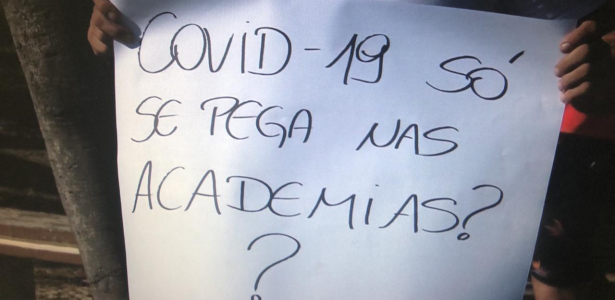 COVID-19 SÓ
SE PEGA NAS
ACADEMIAS?
?